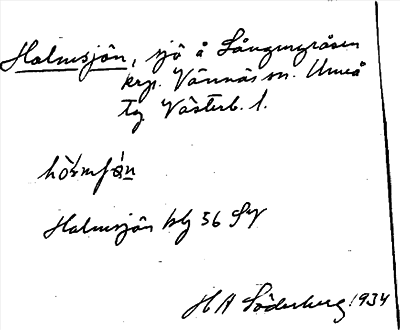 Holmsjön, sjö å Långmyråsen
krp. Vännäs sn. Umeå
tg Västerb. l.
Holmsjön blg 56 SV
H A Söderberg 1934